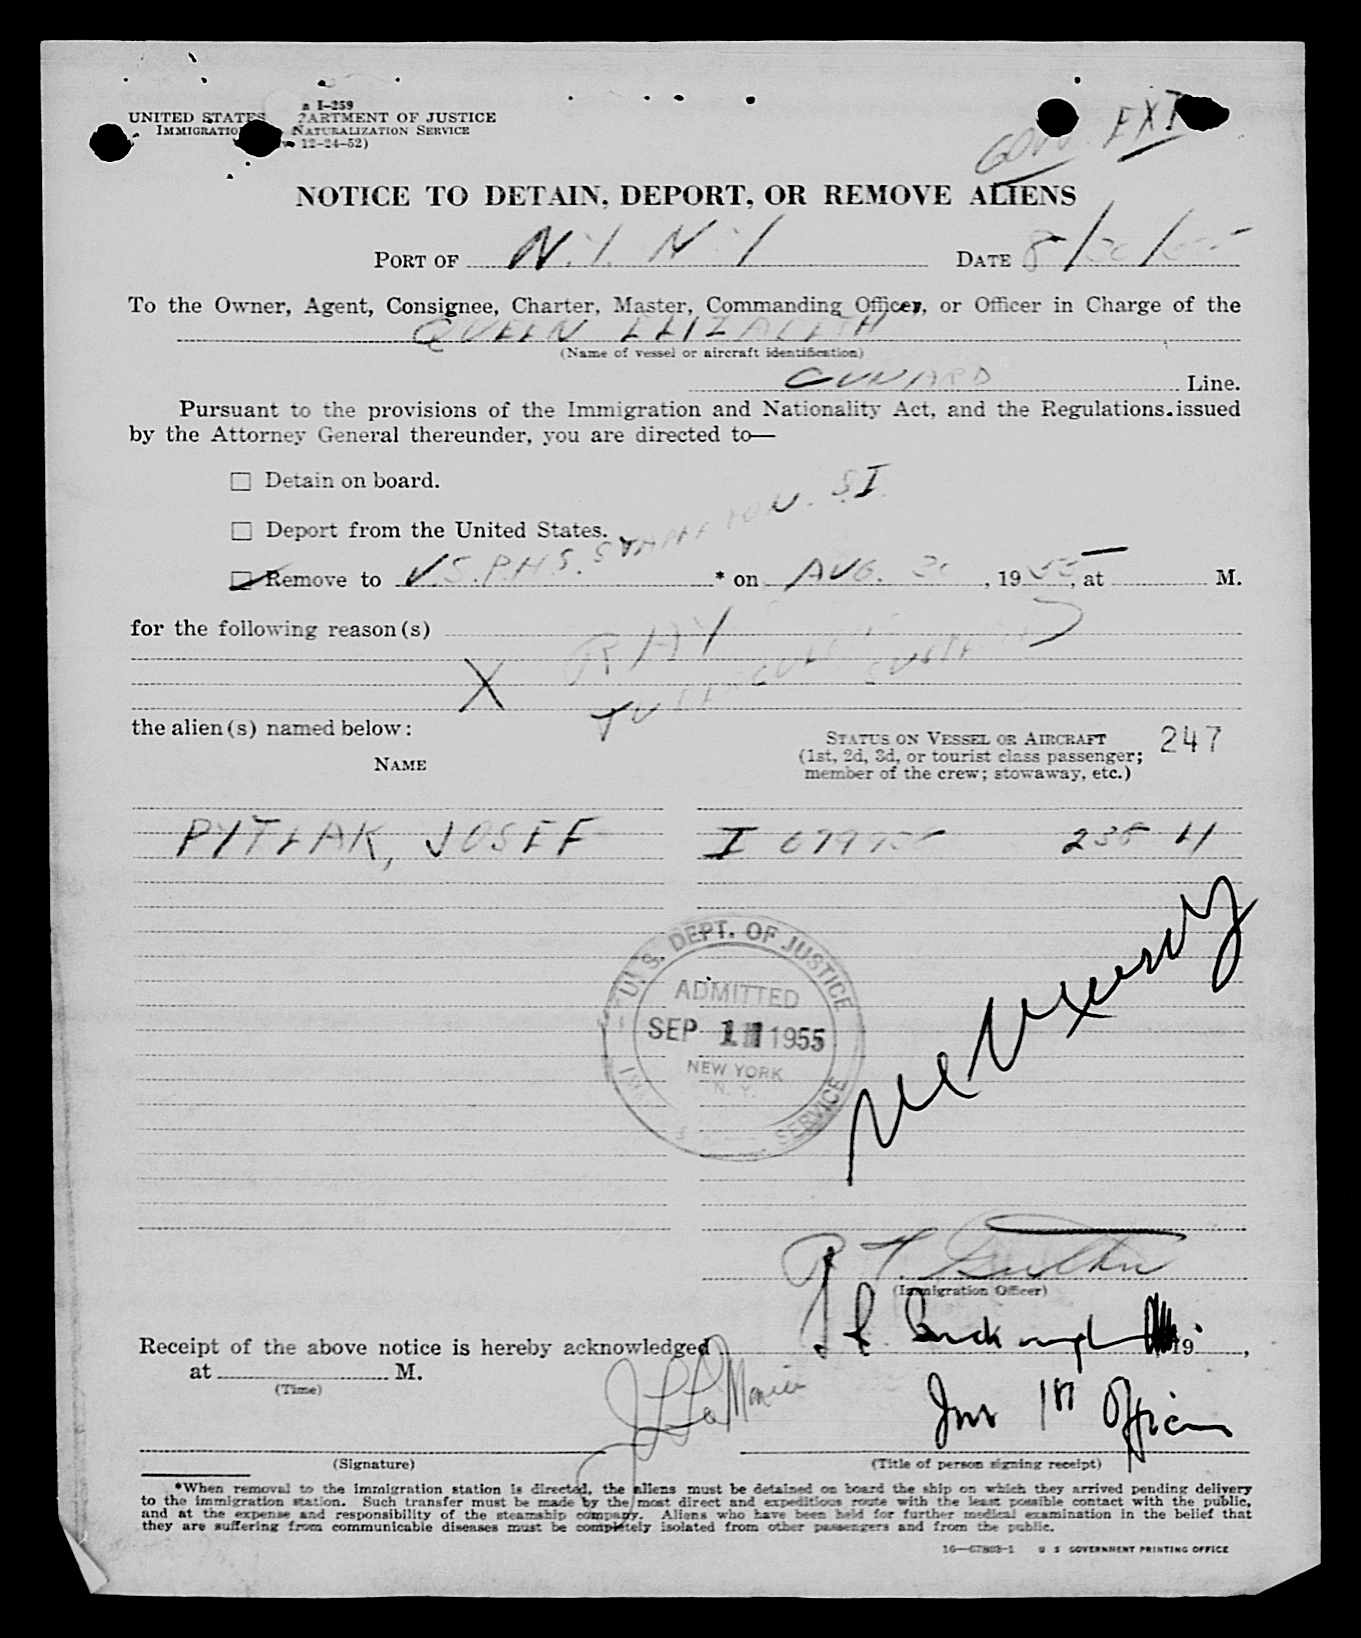 I-259
UNITED STATES DEPARTMENT OF JUSTICE
IMMIGRATION NATURALIZATION SERVICE
12-24-52)
EXT
NOTICE TO DETAIN, DEPORT, OR REMOVE ALIENS
PORT OF N.Y. N.Y DATE 8/30/55
To the Owner, Agent, Consignee, Charter, Master, Commanding Officer, or Officer in Charge of the
QUEEN ELIZABETH
(Name of vessel or aircraft identification)
CUNARD Line.
Pursuant to the provisions of the Immigration and Nationality Act, and the Regulations issued
by the Attorney General thereunder, you are directed to—
☐ Detain on board.
☐ Deport from the United States.
☐ Remove to U.S.P.H.S. STAPLETON. S.I. * on AUG. 30, 1955, at — M.
for the following reason(s)
X RAY
the alien(s) named below:
STATUS ON VESSEL OR AIRCRAFT 247
(1st, 2d, 3d, or tourist class passenger;
member of the crew; stowaway, etc.)
NAME
PYTLAK, JOSEF I
U. S. DEPT. OF JUSTICE
ADMITTED
SEP 1955
NEW YORK
N. Y.
SERVICE
(Immigration Officer)
Receipt of the above notice is hereby acknowledged 19 ,
at M.
(Time)
Jnr 1st Officer
(Signature) (Title of person signing receipt)
*When removal to the immigration station is directed, the aliens must be detained on board the ship on which they arrived pending delivery
to the immigration station. Such transfer must be made by the most direct and expeditious route with the least possible contact with the public,
and at the expense and responsibility of the steamship company. Aliens who have been held for further medical examination in the belief that
they are suffering from communicable diseases must be completely isolated from other passengers and from the public.
U S GOVERNMENT PRINTING OFFICE